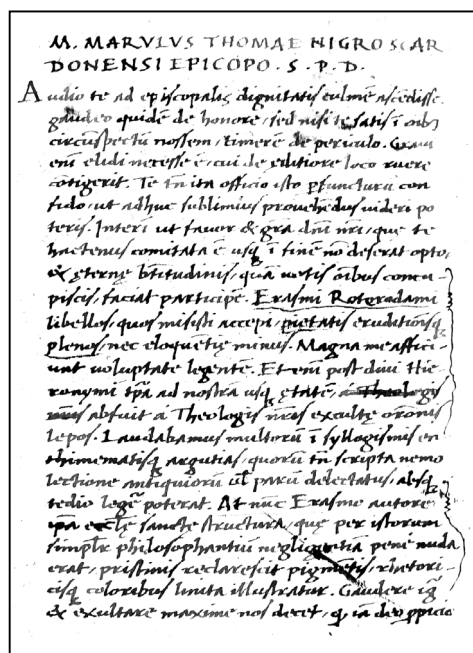 M. MARVLVS THOMAE NIGRO SCAR
DONENSI EPICOPO. S. P. D.
Audio te ad epīscopalis dignitatis culmē ascēdisse.
gaudeo quidē de honore, sed nisi te satis ī oībꝰ
circūspectū nossem, timerē de periculo. Graui
enī elidi necesse ē, cui de editiore loco ruere
cōtigerit. Te tn̄ ita officio isto pfuncturū con
fido, ut adhuc sublimius prouehēdus uideri po
teris. Interī ut fauor & grā dn̄i nr̄i, que te
hactenus comitata ē usq; ī finē nō deserat opto,
& eternę btītudinis, quā uotis oībus concu-
piscis, faciat participē. Erasmi Roterodami
libellos, quos misisti accepi, pietatis eruditionisq;
plenos, nec eloquētię minus. Magna me affici-
unt uoluptate legentē. Et enī post diuū Hie
ronymū tp̄a ad nostrā usq; ętatē, a Theologis
abfuit a Theologis nr̄is excultę orōnis
lepos. Laudabamus multorū ī syllogismis en
thimematisq; argutias, quorū tn̄ scripta nemo
lectione antiquiorū ul̄ parū delectatus, absq;
tedio legē poterat. At nūc Erasmo autore
ip̄a ecclę sanctę structura, quę per istorum
simplr̄ philosophantiū negligentiā penē nuda
erat, pristinis reclarescit pigmētis, rhetori-
cisq; coloribus linita illustratur. Gaudere ig̃
& exultare maxime nos decet, q, iā deo ppicio